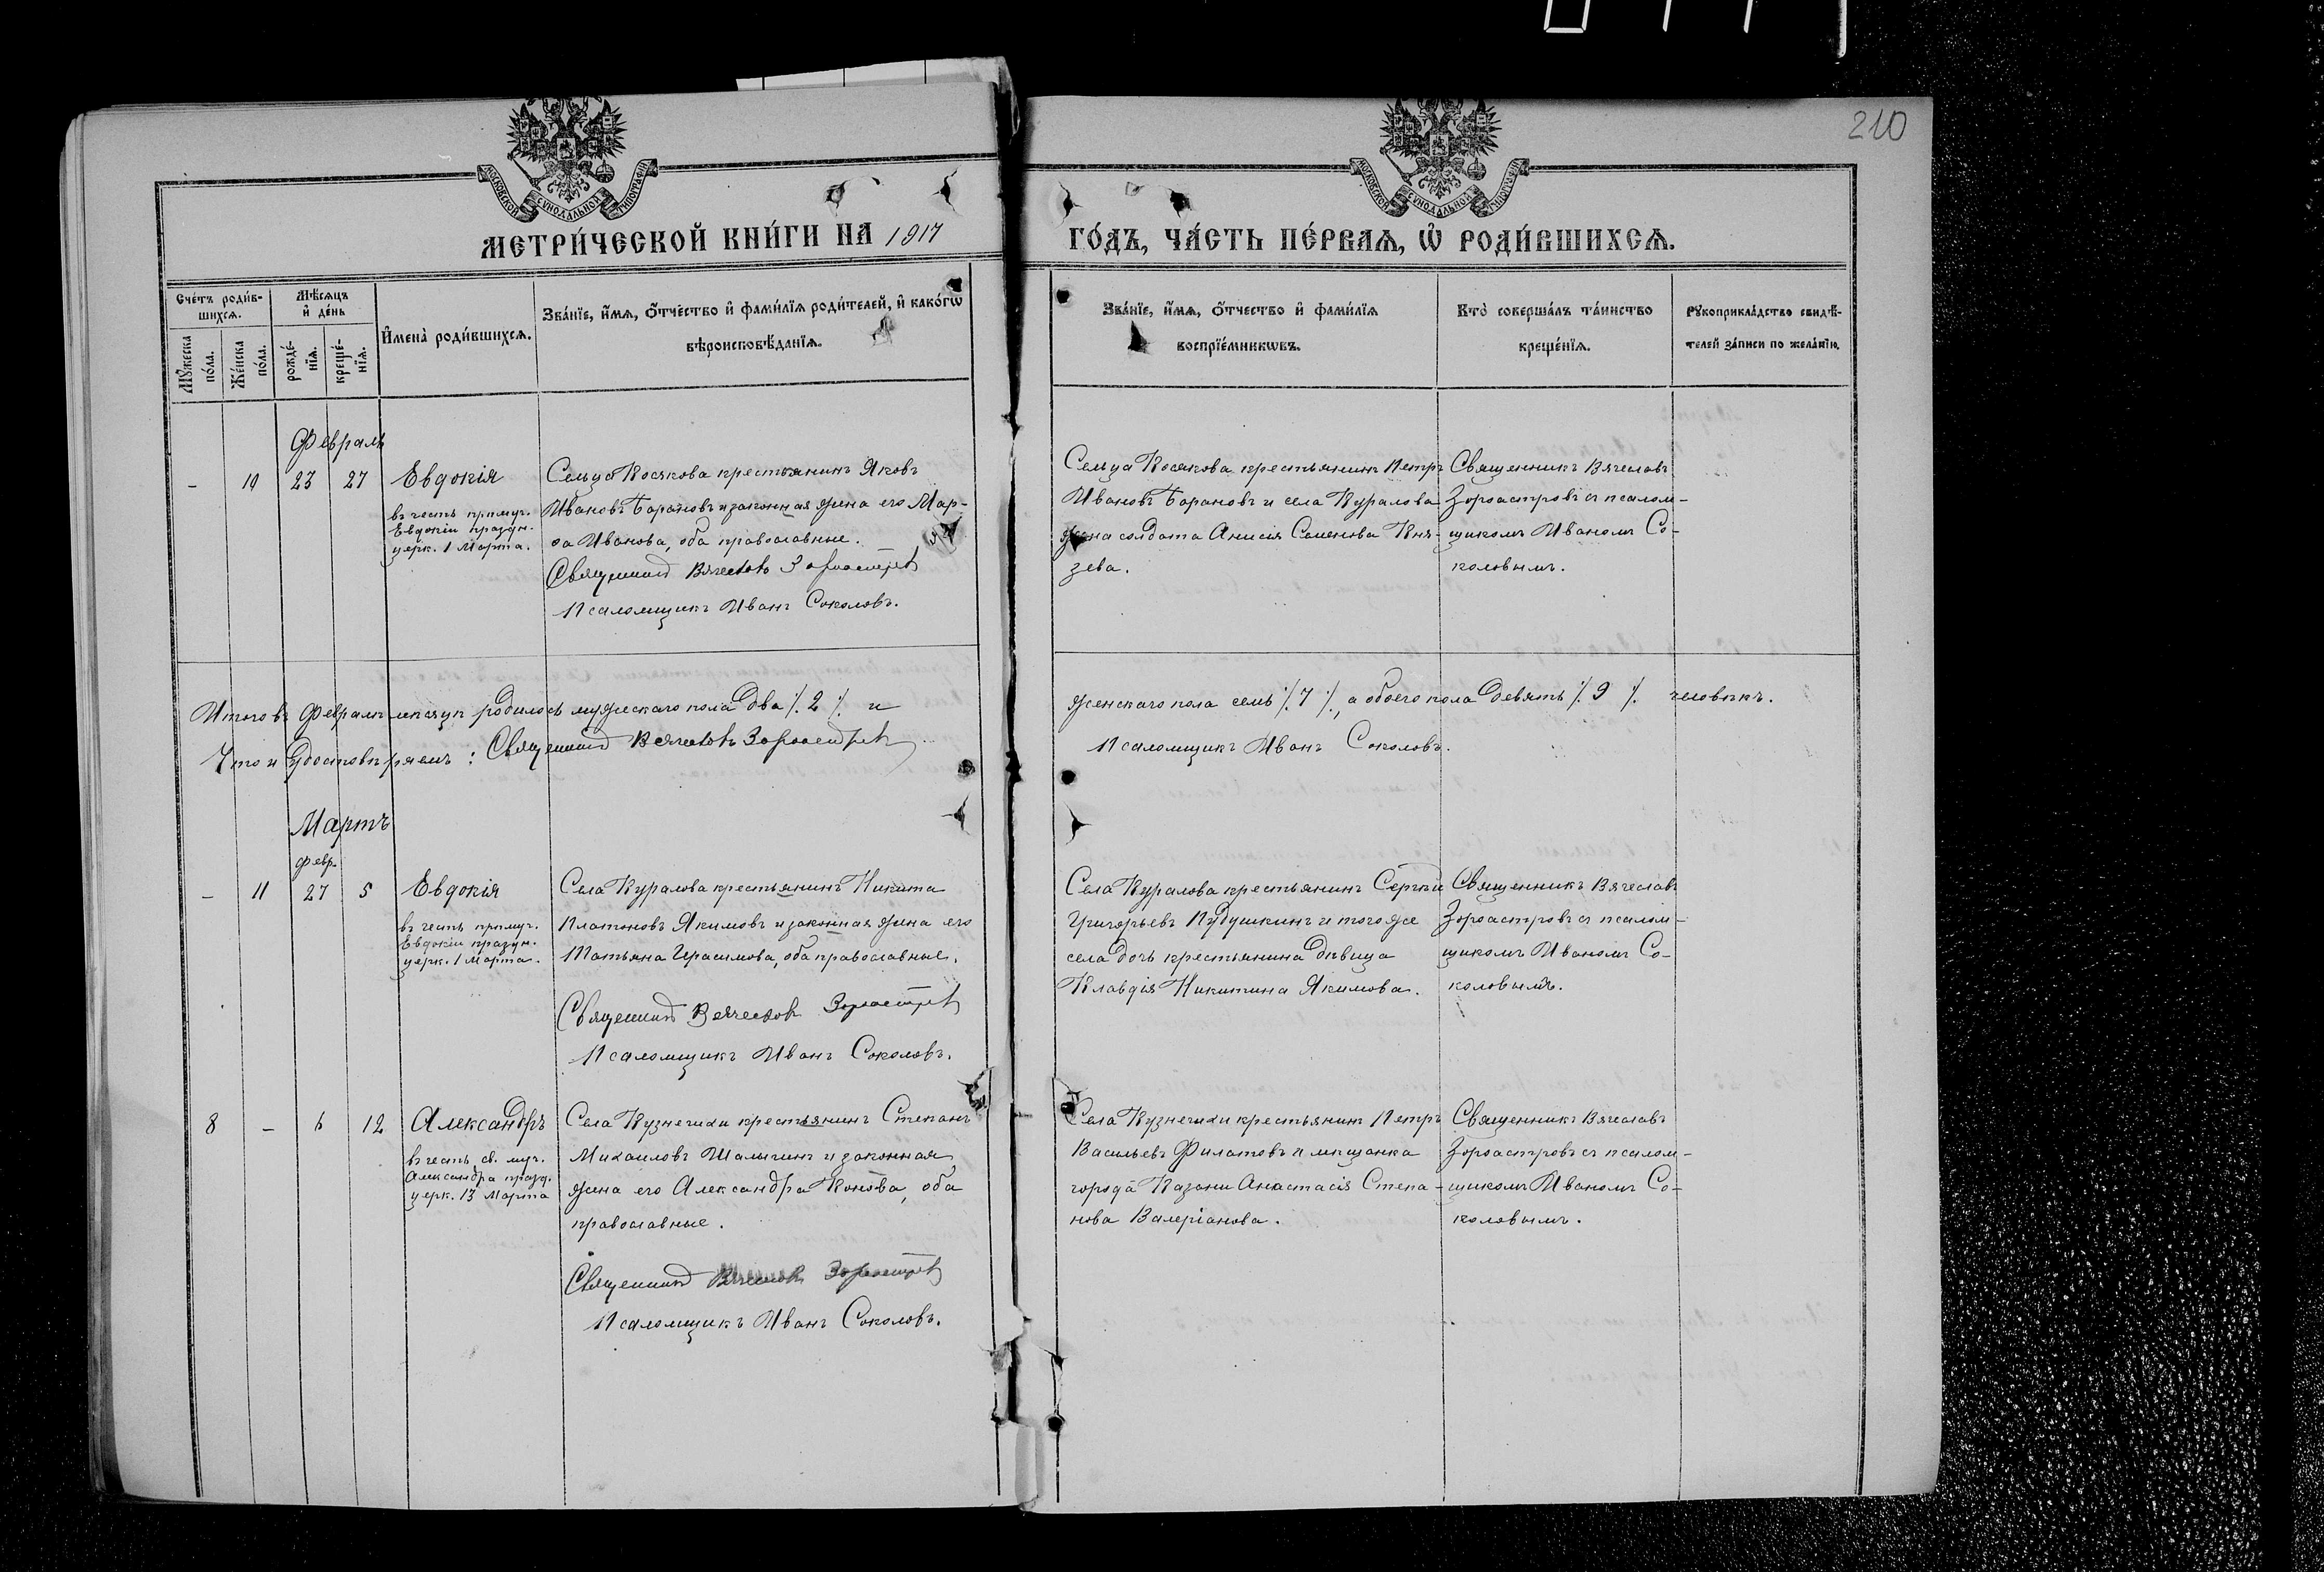 210
МОСКОВСКОЙ СѴНОДАЛЬНОЙ ТИПОГРАФІИ
МОСКОВСКОЙ СѴНОДАЛЬНОЙ ТИПОГРАФІИ
МЕТРИ́ЧЕСКОЙ КНИ́ГИ НА 1917
ГО́ДЪ, ЧА́СТЬ ПЕ́РВАѦ, Ѡ҆ РОДИ́ВШИХСѦ.
Сче́тъ роди́в-
шихсѧ.
Мѣ́сѧцъ
и҆ де́нь
Мꙋ́жеска
по́ла.
Же́нска
по́ла.
рожде́-
нїѧ.
креще́-
нїѧ.
И҆мена̀ роди́вшихсѧ.
Зва́нїе, и҆́мѧ, ѻ҆́тчество и҆ фами́лїѧ роди́телей, и҆ како́гѡ
вѣроисповѣ́данїѧ.
Зва́нїе, и҆́мѧ, ѻ҆́тчество и҆ фами́лїѧ
воспрїе́мникѡвъ.
Кто̀ соверша́лъ та́инство
креще́нїѧ.
Рꙋкоприкла́дство свидѣ́-
телей за́писи по жела́нїю.
Февраль
- 10 23 27 Евдокія
въ честь прпмуч.
Евдокіи праздн.
церк. 1 Марта.
Сельца Косякова крестьянинъ Яковъ
Ивановъ Барановъ и законная жена его Мар-
ѳа Иванова, оба православные.
Священникъ Вячеславъ Зороастровъ
Псаломщикъ Иванъ Соколовъ.
Сельца Косякова крестьянинъ Петръ
Ивановъ Барановъ и села Куралова
жена солдата Анисія Семенова Кня-
зева.
Священникъ Вячеславъ
Зороастровъ съ псалом-
щикомъ Иваномъ Со-
коловымъ.
Итого въ Февралѣ мѣсяцѣ родилось мужескаго пола два ./. 2 ./. и
женскаго пола семь ./. 7 ./., а обоего пола девять ./. 9 ./. человѣкъ.
Что и удостовѣряемъ: Священникъ Вячеславъ Зороастровъ
Псаломщикъ Иванъ Соколовъ.
Мартъ
февр.
- 11 27 5 Евдокія
въ честь прпмуч.
Евдокіи праздн.
церк. 1 Марта.
Села Куралова крестьянинъ Никита
Платоновъ Якимовъ и законная жена его
Татьяна Герасимова, оба православные.
Священникъ Вячеславъ Зороастровъ
Псаломщикъ Иванъ Соколовъ.
Села Куралова крестьянинъ Сергѣй
Григорьевъ Пудушкинъ и того же
села дочь крестьянина дѣвица
Клавдія Никитина Якимова.
Священникъ Вячеславъ
Зороастровъ съ псалом-
щикомъ Иваномъ Со-
коловымъ.
8 - 6 12 Александръ
въ честь св. муч.
Александра празд.
церк. 13 Марта
Села Кузнечихи крестьянинъ Степанъ
Михаиловъ Шалыгинъ и законная
жена его Александра Конова, оба
православные.
Священникъ Вячеславъ Зороастровъ
Псаломщикъ Иванъ Соколовъ.
Села Кузнечихи крестьянинъ Петръ
Васильевъ Филатовъ и мѣщанка
города Казани Анастасія Степа-
нова Валеріанова.
Священникъ Вячеславъ
Зороастровъ съ псалом-
щикомъ Иваномъ Со-
коловымъ.